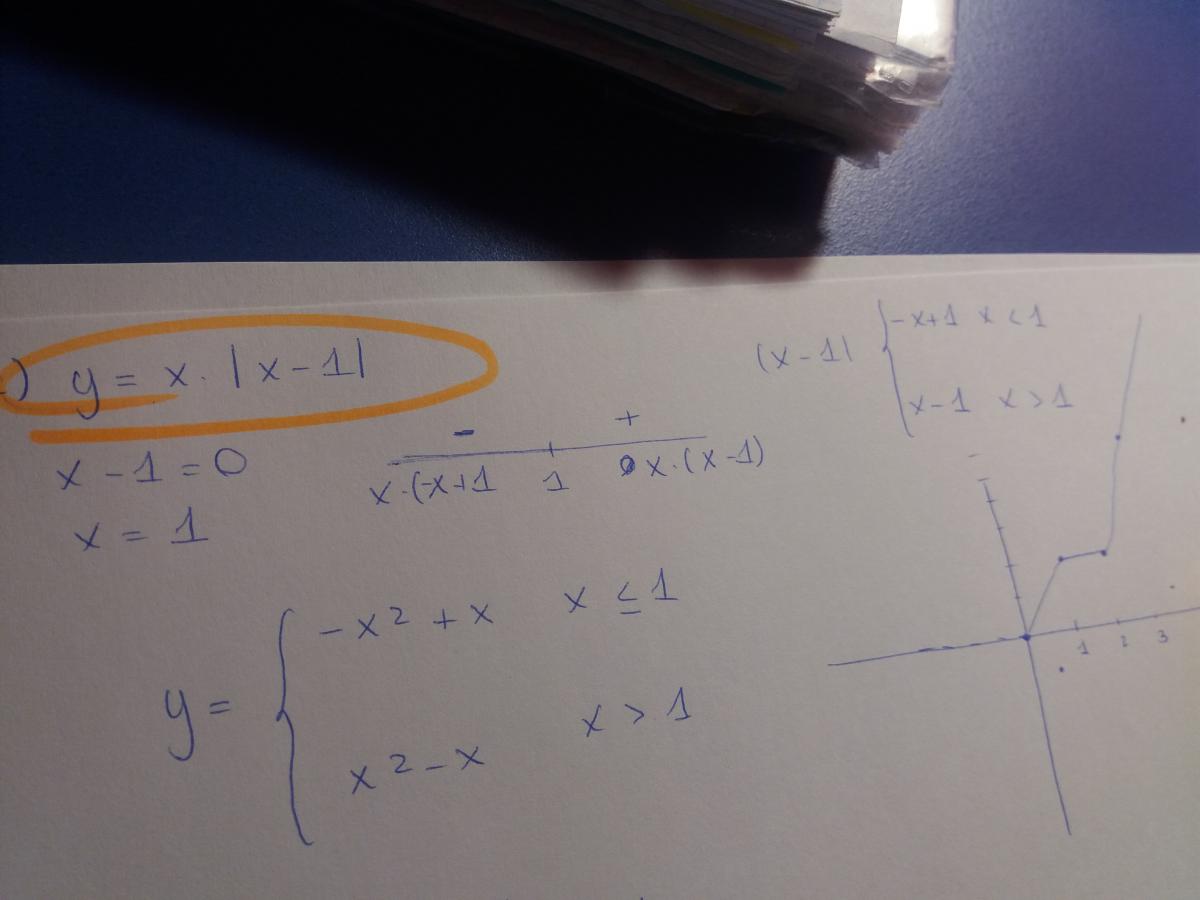 ) y = x · |x-1|
x - 1 = 0
x = 1
- +
x·(-x+1 1 x·(x-1)
(x-1| { -x+1 x < 1
x-1 x > 1
y = { -x² + x x ≤ 1
x² - x x > 1
1 2 3